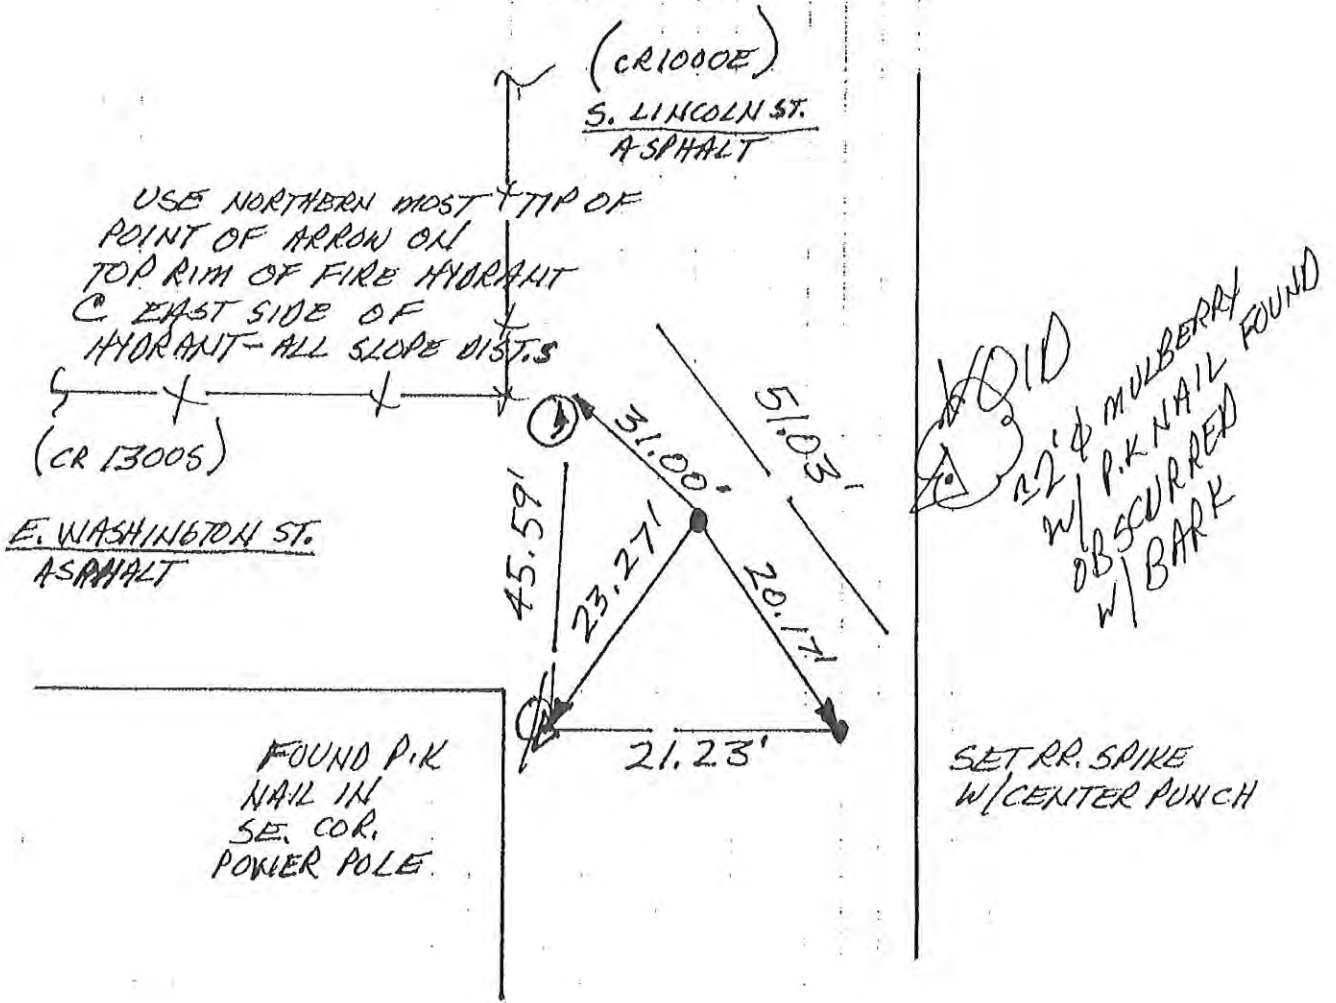 (CR1000E)
S. LINCOLN ST.
ASPHALT
USE NORTHERN MOST TIP OF
POINT OF ARROW ON
TOP RIM OF FIRE HYDRANT
@ EAST SIDE OF
HYDRANT-ALL SLOPE DIST.S
(CR 1300S)
E. WASHINGTON ST.
ASPHALT
31.00'
51.03'
45.59'
23.27'
20.17'
21.23'
VOID
22"ϕ MULBERRY
W/ P.K NAIL FOUND
OBSCURRED
W/ BARK
FOUND P.K
NAIL IN
SE. COR.
POWER POLE
SET RR. SPIKE
W/CENTER PUNCH